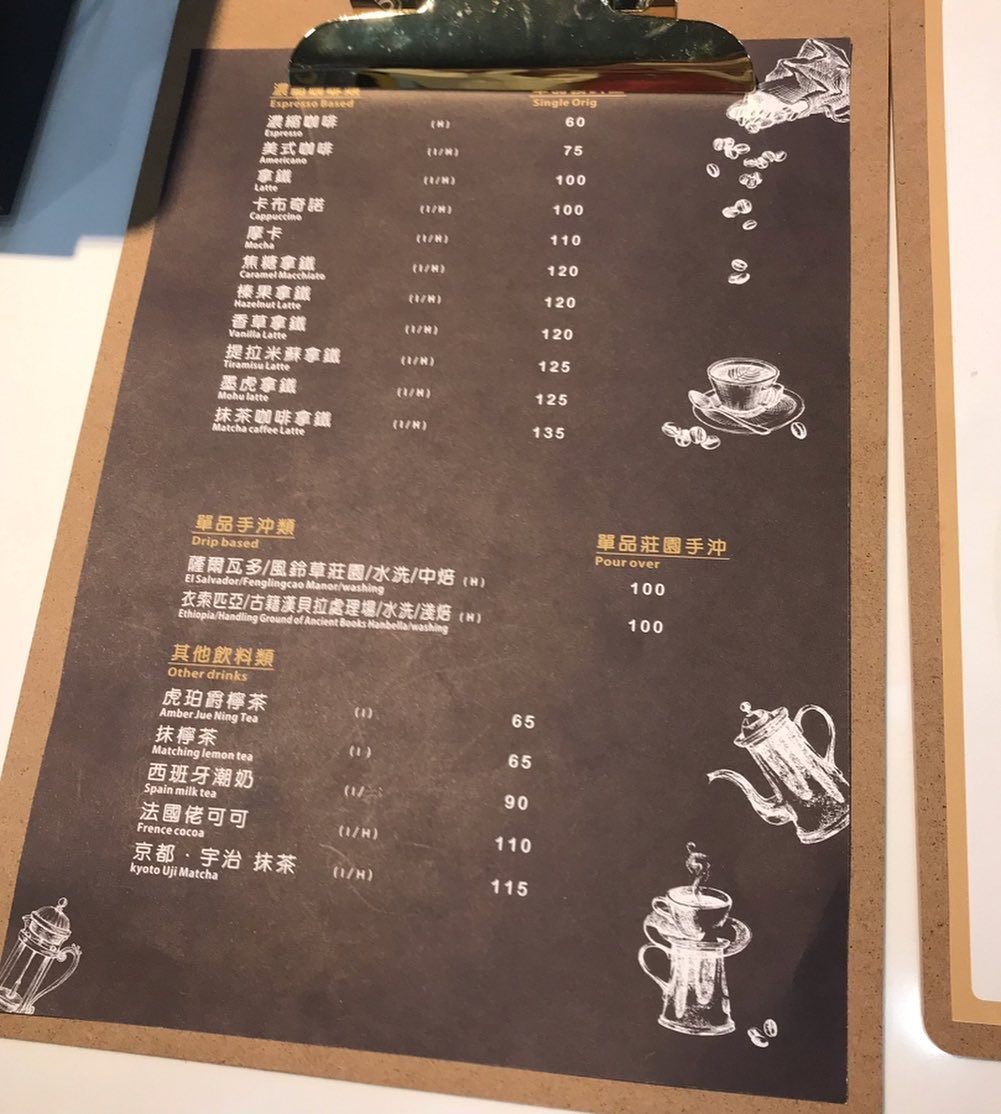 Espresso Based
Single Orig
濃縮咖啡 (H) 60
Espresso
美式咖啡 (I/H) 75
Americano
拿鐵 (I/H) 100
Latte
卡布奇諾 (I/H) 100
Cappuccino
摩卡 (I/H) 110
Mocha
焦糖拿鐵 (I/H) 120
Caramel Macchiato
榛果拿鐵 (I/H) 120
Hazelnut Latte
香草拿鐵 (I/H) 120
Vanilla Latte
提拉米蘇拿鐵 (I/H) 125
Tiramisu Latte
墨虎拿鐵 (I/H) 125
Mohu latte
抹茶咖啡拿鐵 (I/H) 135
Matcha caffee Latte
單品手沖類 單品莊園手沖
Drip based Pour over
薩爾瓦多/風鈴草莊園/水洗/中焙 (H) 100
El Salvador/Fenglingcao Manor/washing
衣索匹亞/古籍漢貝拉處理場/水洗/淺焙 (H) 100
Ethiopia/Handling Ground of Ancient Books Hanbella/washing
其他飲料類
Other drinks
虎珀爵檸茶 (I) 65
Amber Jue Ning Tea
抹檸茶 (I) 65
Matching lemon tea
西班牙潮奶 (I/ 90
Spain milk tea
法國佬可可 (I/H) 110
Frence cocoa
京都．宇治 抹茶 (I/H) 115
kyoto Uji Matcha